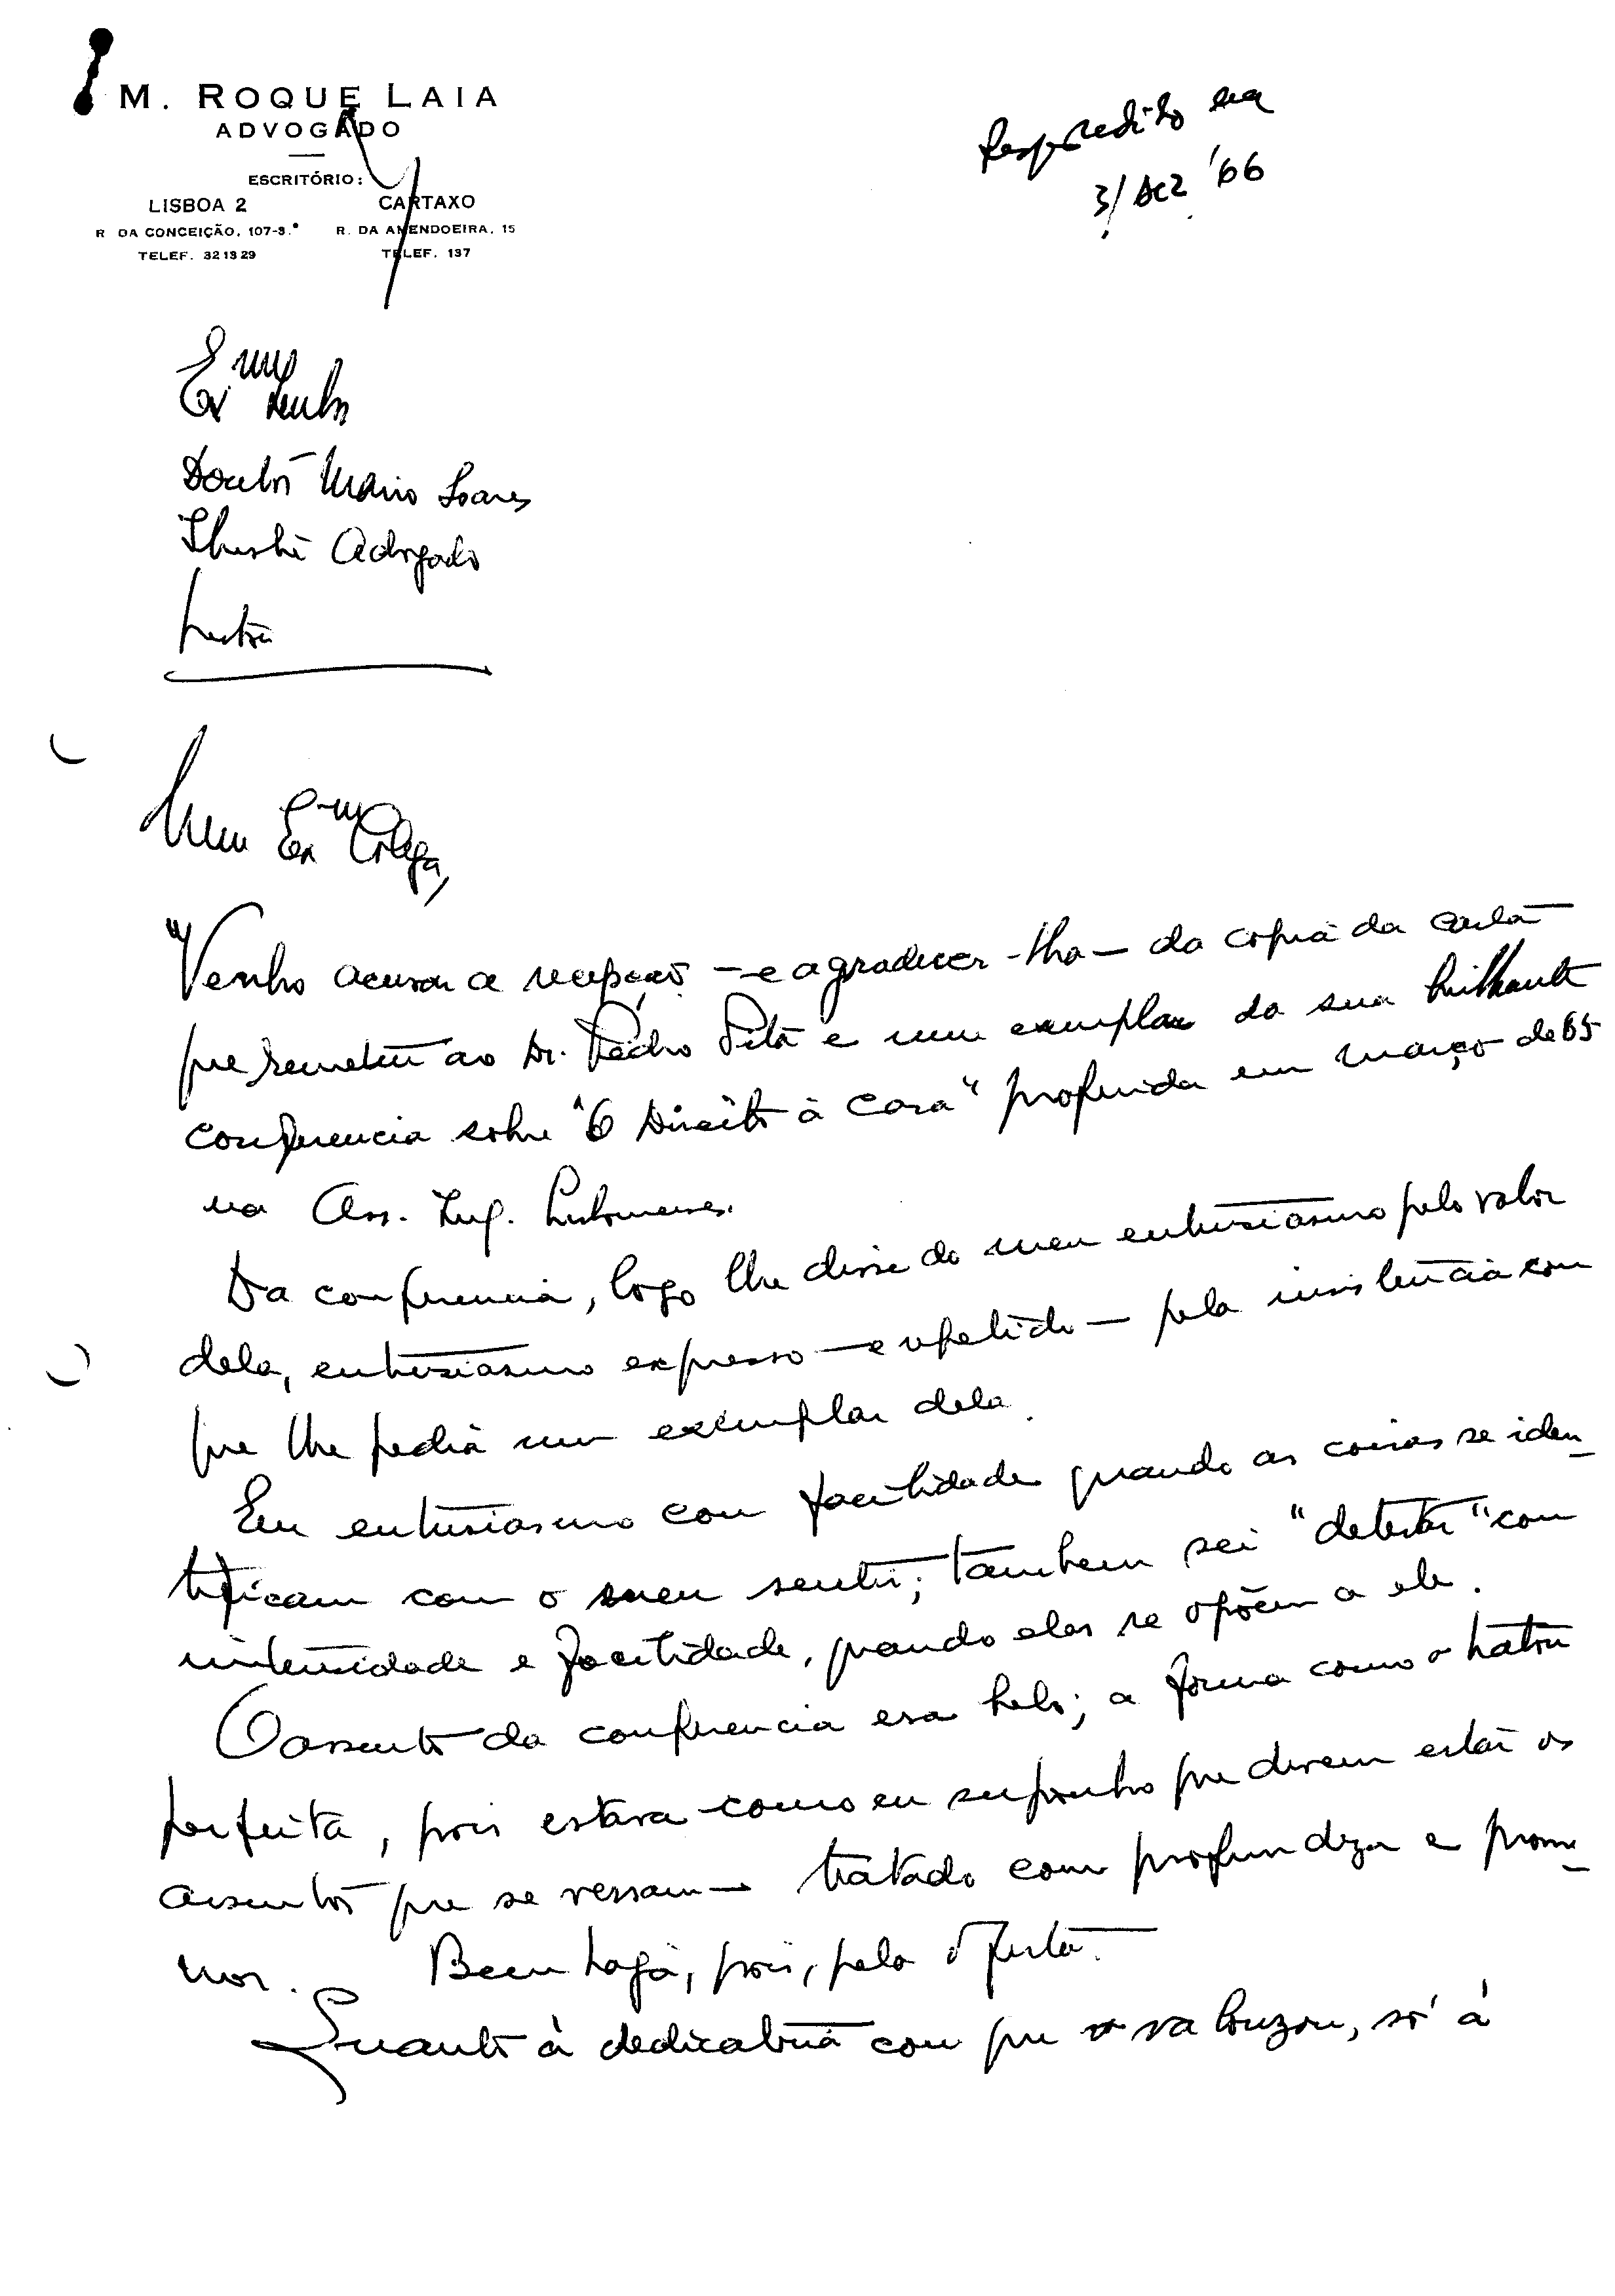 M. ROQUE LAIA
ADVOGADO
ESCRITÓRIO:
LISBOA 2 CARTAXO
R DA CONCEIÇÃO, 107-3.º R. DA AMENDOEIRA, 15
TELEF. 321329 TELEF. 137
Respondido em
3/Dez '66
Exmo Senhor
Doutor Mario Soares
Ilustre Advogado
Lisboa
Meu Exmo Colega,
Venho acusar a recepção — e agradecer-lha — da copia da carta
que remeteu ao Dr. Pedro Pita e um exemplar da sua brilhante
conferencia sobre "O Direito à Casa" proferida em março de 65
na Ass. Inq. Lisbonenses.
Da conferencia, logo lhe disse do meu entusiasmo pelo valor
dela, entusiasmo expresso — e repetido — pela insistencia com
que lhe pedia um exemplar dela.
Eu entusiasmo com facilidade quando as coisas se iden-
tificam com o meu sentir; tambem sei "detestar" com
intensidade e facilidade, quando elas se opõem a ele.
O assunto da conferencia era belo; a forma como o tratou
perfeita, pois estava — como eu suponho que devem estar os
assuntos que se versam — tratado com profundeza e pormenor
nor. Bem haja, pois, pela oferta.
Quanto à dedicatoria com que a valorizou, só à